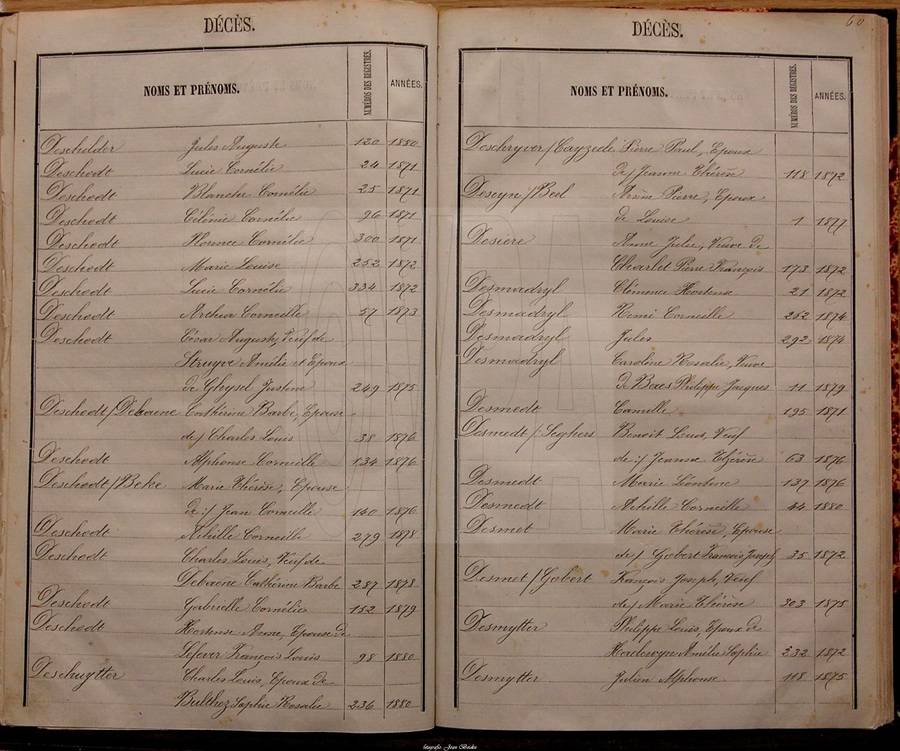 DÉCÈS.
NOMS ET PRÉNOMS.
NUMÉROS DES REGISTRES.
ANNÉES.
Deschelder Jules Auguste 120 1880
Deschodt Lucie Cornélie 24 1871
Deschodt Blanche Cornélie 25 1871
Deschodt Célénie Cornélie 96 1871
Deschodt Florence Cornélie 300 1871
Deschodt Marie Louise 252 1872
Deschodt Lucie Cornélie 334 1872
Deschodt Arthur Corneille 57 1873
Deschodt César Auguste, Veuf de
Struyve Amélie et Epoux
de Gheysel Justine 249 1875
Deschodt/Debaene Cathérine Barbe, Epouse
de/ Charles Louis 38 1876
Deschodt Alphonse Corneille 134 1876
Deschodt/Beke Marie Thérèse, Epouse
de:/ Jean Corneille 140 1876
Deschodt Achille Corneille 279 1878
Deschodt Charles Louis, Veuf de
Debaene Cathérine Barbe 287 1878
Deschodt Gabrielle Cornélie 152 1879
Deschodt Hortense Anne, Epouse de
Lefever François Louis 98 1880
Deschuytter Charles Louis, Epoux de
Bulthez Sophie Rosalie 236 1880
60
DÉCÈS.
NOMS ET PRÉNOMS.
NUMÉROS DES REGISTRES.
ANNÉES.
Deschryver/Cayzeele Pierre Paul, Epoux
de/ Jeanne Thérèse 118 1872
Deseyn/Beel Pierre, Epoux
de Louise 1 1877
Desiere Anne Julie, Veuve de
Charlet Pierre François 173 1872
Desmadryl Clémence Hortense 21 1872
Desmadryl Remi Corneille 262 1874
Desmadryl Jules 292 1874
Desmadryl Caroline Rosalie, Veuve
de Baes Philippe Jacques 11 1879
Desmedt Camille 195 1871
Desmedt/Seghers Benoit Louis, Veuf
de:/ Jeanne Thérèse 63 1876
Desmedt Marie Léontine 137 1876
Desmedt Achille Corneille 44 1880
Desmet Marie Thérèse, Epouse
de/ Gobert François Joseph 35 1872
Desmet/Gobert François Joseph, Veuf
de/ Marie Thérèse 303 1875
Desmytter Philippe Louis, Epoux de
Amélie Sophie 232 1872
Desmytter Julien Alphonse 118 1875
fotografie Jean Beeke